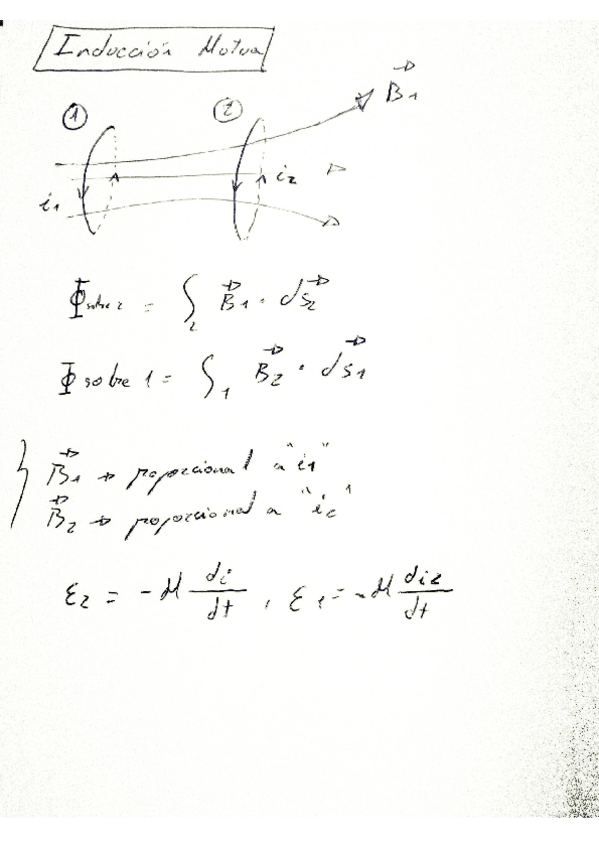 Inducción Mutua
B⃗1
① ②
i2
i1
Φ sobre 2 = ∫2 B⃗1 · ds⃗2
Φ sobre 1 = ∫1 B⃗2 · ds⃗1
B⃗1 → proporcional a "i1"
B⃗2 → proporcional a "i2"
ε2 = -M di/dt , ε1 = -M di2/dt